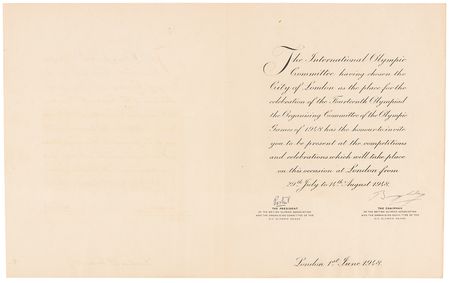 The International Olympic
Committee having chosen the
City of London as the place for the
celebration of the Fourteenth Olympiad
the Organising Committee of the Olympic
Games of 1948 has the honour to invite
you to be present at the competitions
and celebrations which will take place
on this occasion at London from
29th July to 14th August 1948.
THE PRESIDENT
OF THE BRITISH OLYMPIC ASSOCIATION
AND THE ORGANISING COMMITTEE OF THE
XIV OLYMPIC GAMES
THE CHAIRMAN
OF THE BRITISH OLYMPIC ASSOCIATION
AND THE ORGANISING COMMITTEE OF THE
XIV OLYMPIC GAMES
London 1st June 1948.